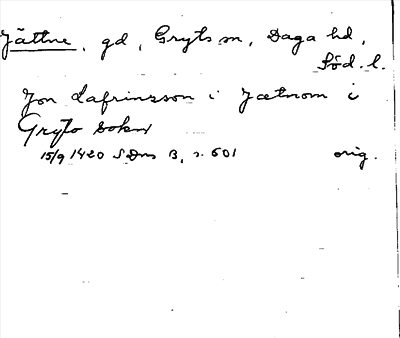 Jättne, gd, Gryts sn, Daga hd,
Söd. l.
Jon Lafrinsson i Jætnom i
Gryto sokn
15/9 1420 SDns B, s. 601 orig.